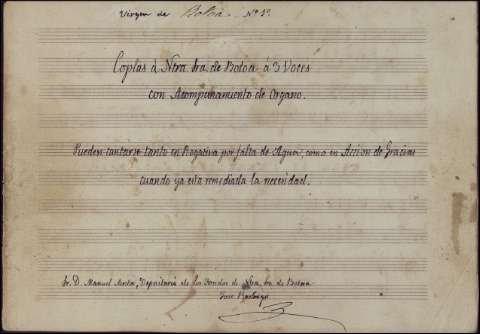 Virgen de Botoa. Nº 1º
Coplas á Ntra. Sra. de Botoa á 3 Voces
con Acompañamiento de Organo.
Pueden cantarse tanto en Rogativa por falta de Agua, como en Accion de Gracias
cuando ya esta remediada la necesidad.
Sr. D. Manuel Depositario de los Fondos de Ntra. Sra. de Botoa
Jose